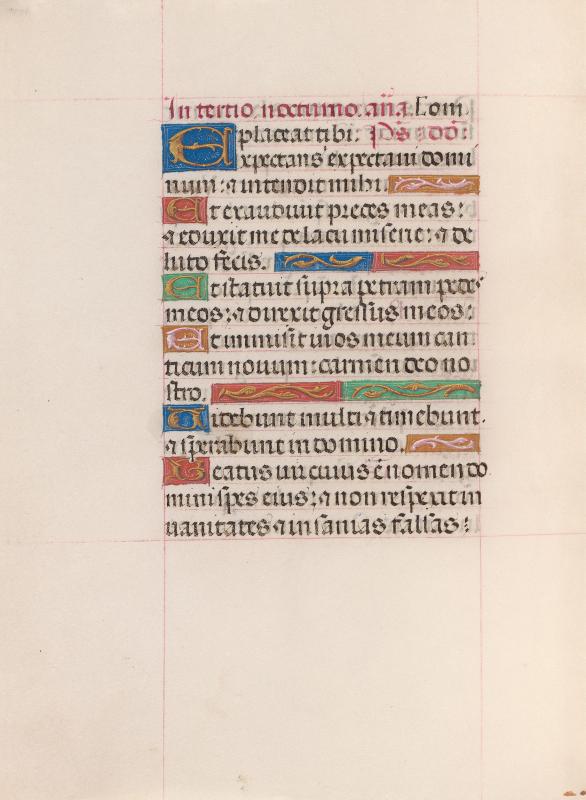 In tertio nocturno. an̄a. Com
placeat tibi. Ps̄ dd̄:
Expectans expectaui domi
num: ⁊ intendit mihi.
Et exaudiuit preces meas:
⁊ eduxit me de lacu miserie: ⁊ de
luto fecis.
Et statuit supra petram pedes
meos: ⁊ direxit gressus meos:
Et immisit in os meum can
ticum nouum: carmen deo no
stro.
Uidebunt multi ⁊ timebunt.
⁊ sperabunt in domino.
Beatus uir cuius ē nomen do
mini spes eius: ⁊ non respexit in
uanitates ⁊ insanias falsas: